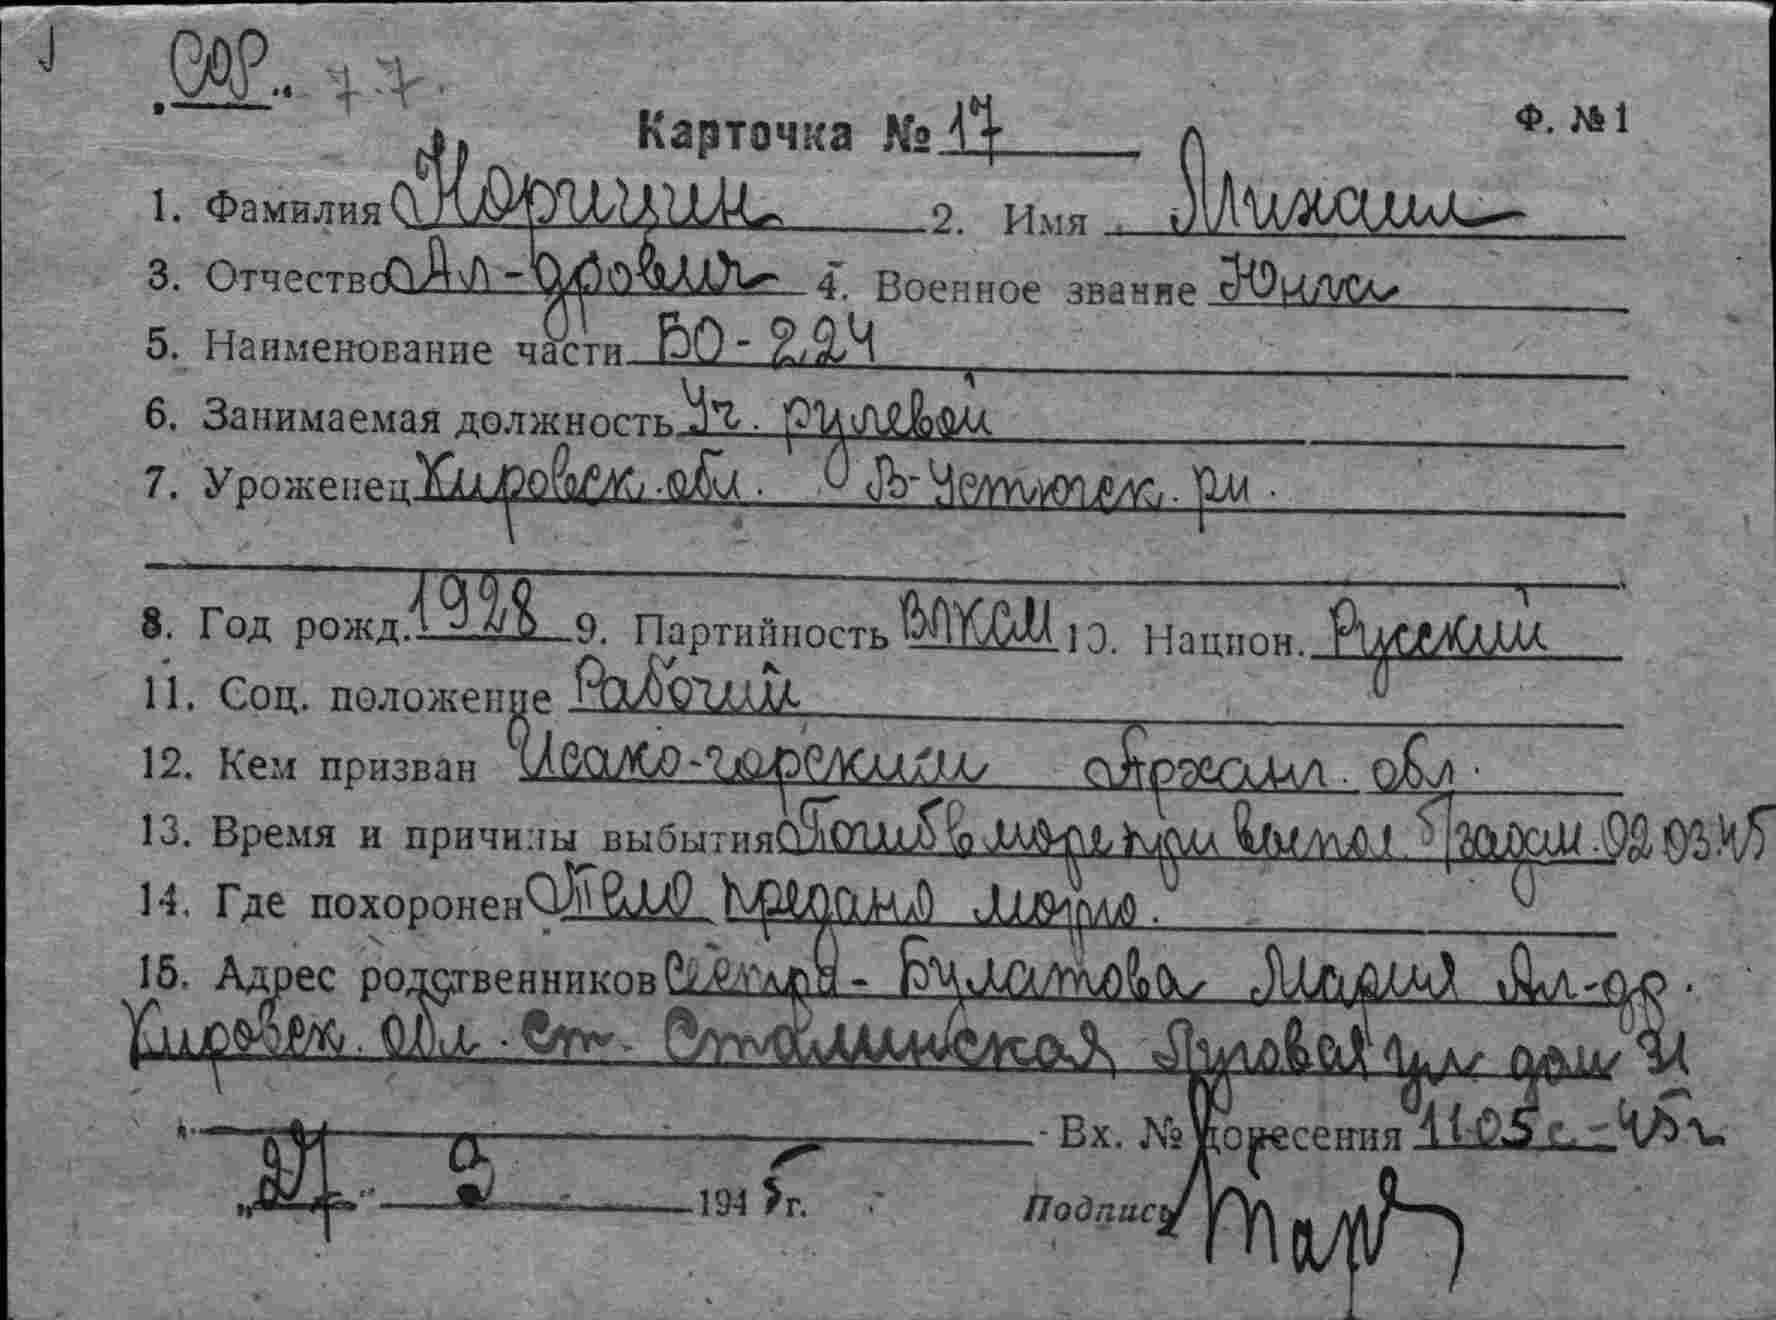 7.7.
Карточка № 17 Ф. №1
1. Фамилия Корицин 2. Имя Михаил
3. Отчество Ал-дрович 4. Военное звание Юнга
5. Наименование части БО-224
6. Занимаемая должность Уч. рулевой
7. Уроженец Кировск. обл. В-Устюгск. рн.
8. Год рожд. 1928 9. Партийность ВЛКСМ 10. Национ. Русский
11. Соц. положение Рабочий
12. Кем призван Исако-горским Архангл. обл.
13. Время и причины выбытия Погиб в море при выпол. задан. 02.03.45
14. Где похоронен Тело предано морю.
15. Адрес родственников Сестра - Булатова Мария Ал-др.
Кировск. обл. ст. Сталинская Луговая ул дом 21
Вх. № донесения 1105с.-45г
„27" 9 1945г. Подпись